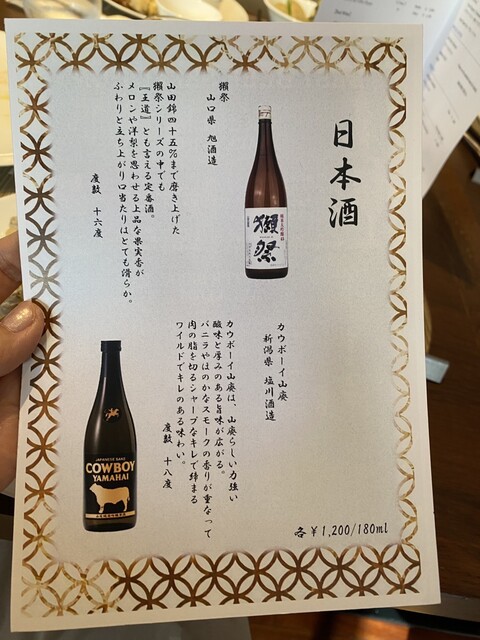 日本酒
獺祭
山口県 旭酒造
山田錦四十五%まで磨き上げた
獺祭シリーズの中でも
『王道』とも言える定番酒。
メロンや洋梨を思わせる上品な果実香が
ふわりと立ち上がり口当たりはとても滑らか。
度数 十六度
獺祭
カウボーイ山廃
新潟県 塩川酒造
カウボーイ山廃は、山廃らしい力強い
酸味と厚みのある旨味が広がる。
バニラやほのかなスモークの香りが重なって
肉の脂を切るシャープなキレで締まる
ワイルドでキレのある味わい。
度数 十八度
JAPANESE SAKE
COWBOY
YAMAHAI
各¥1,200/180ml